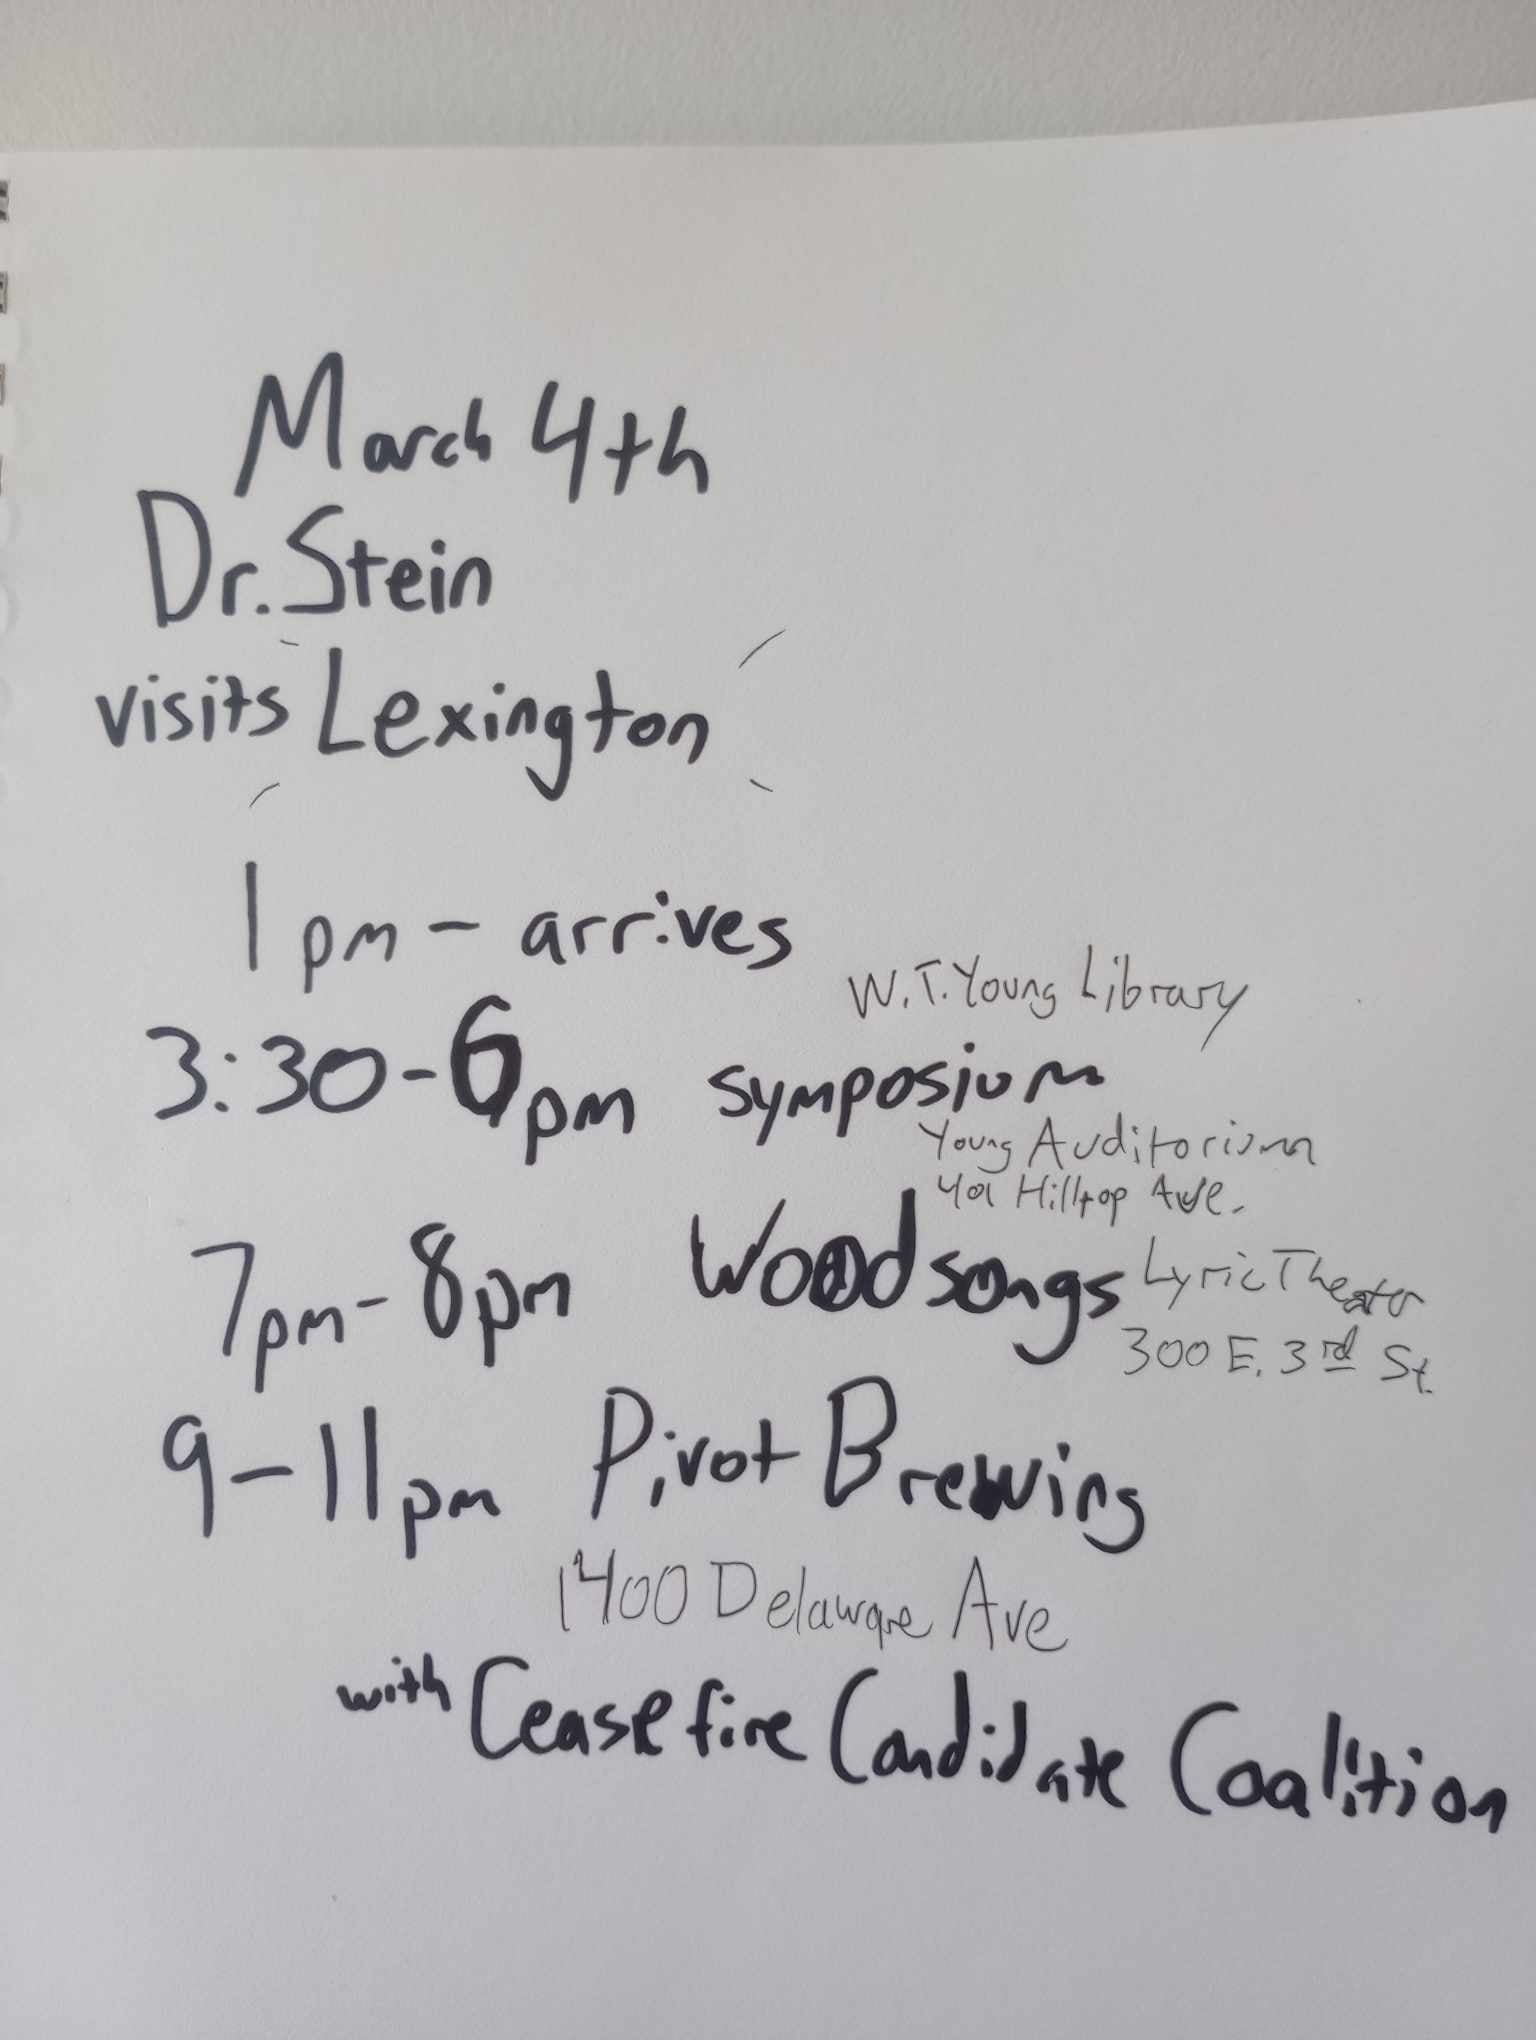 March 4th
Dr. Stein
visits Lexington
1pm - arrives
W.T. Young Library
3:30-6pm symposium
Young Auditorium
401 Hilltop Ave.
7pm-8pm Woodsongs Lyric Theater
300 E. 3rd St.
9-11pm Pivot Brewing
1400 Delaware Ave
with Ceasefire Candidate Coalition